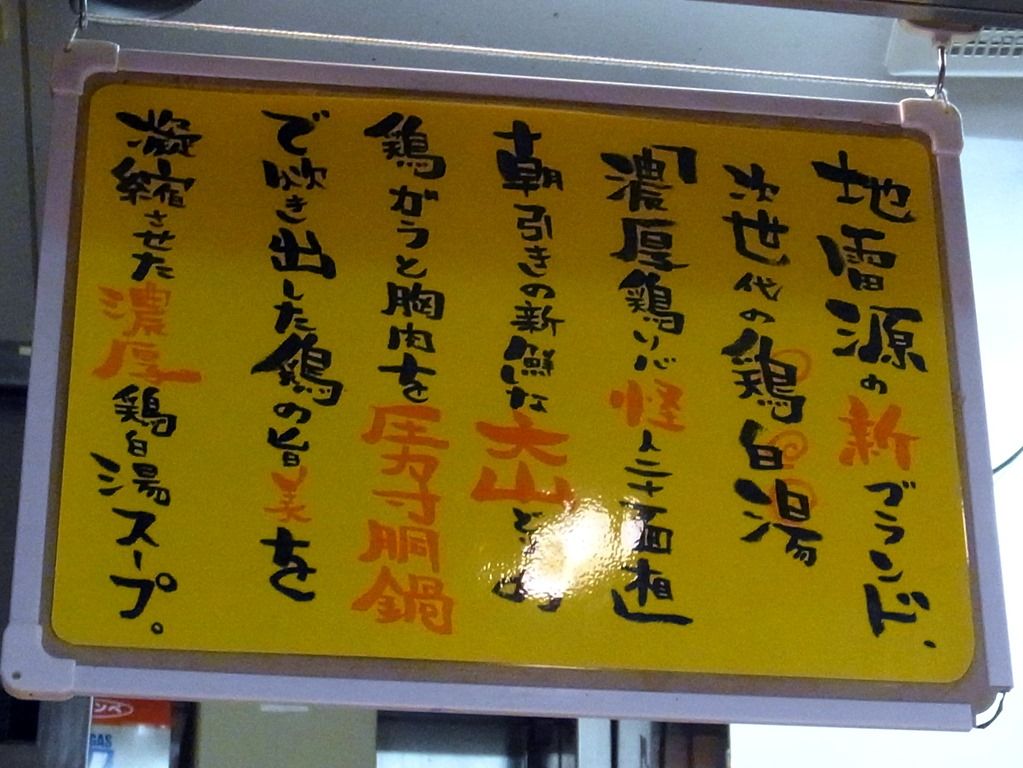 地雷源の新ブランド、
次世代の鶏白湯
「濃厚鶏ソバ 怪人二十面相」
朝引きの新鮮な大山どりの
鶏ガラと胸肉を圧力寸胴鍋
で炊き出した鶏の旨美を
凝縮させた濃厚鶏白湯スープ。
GAS